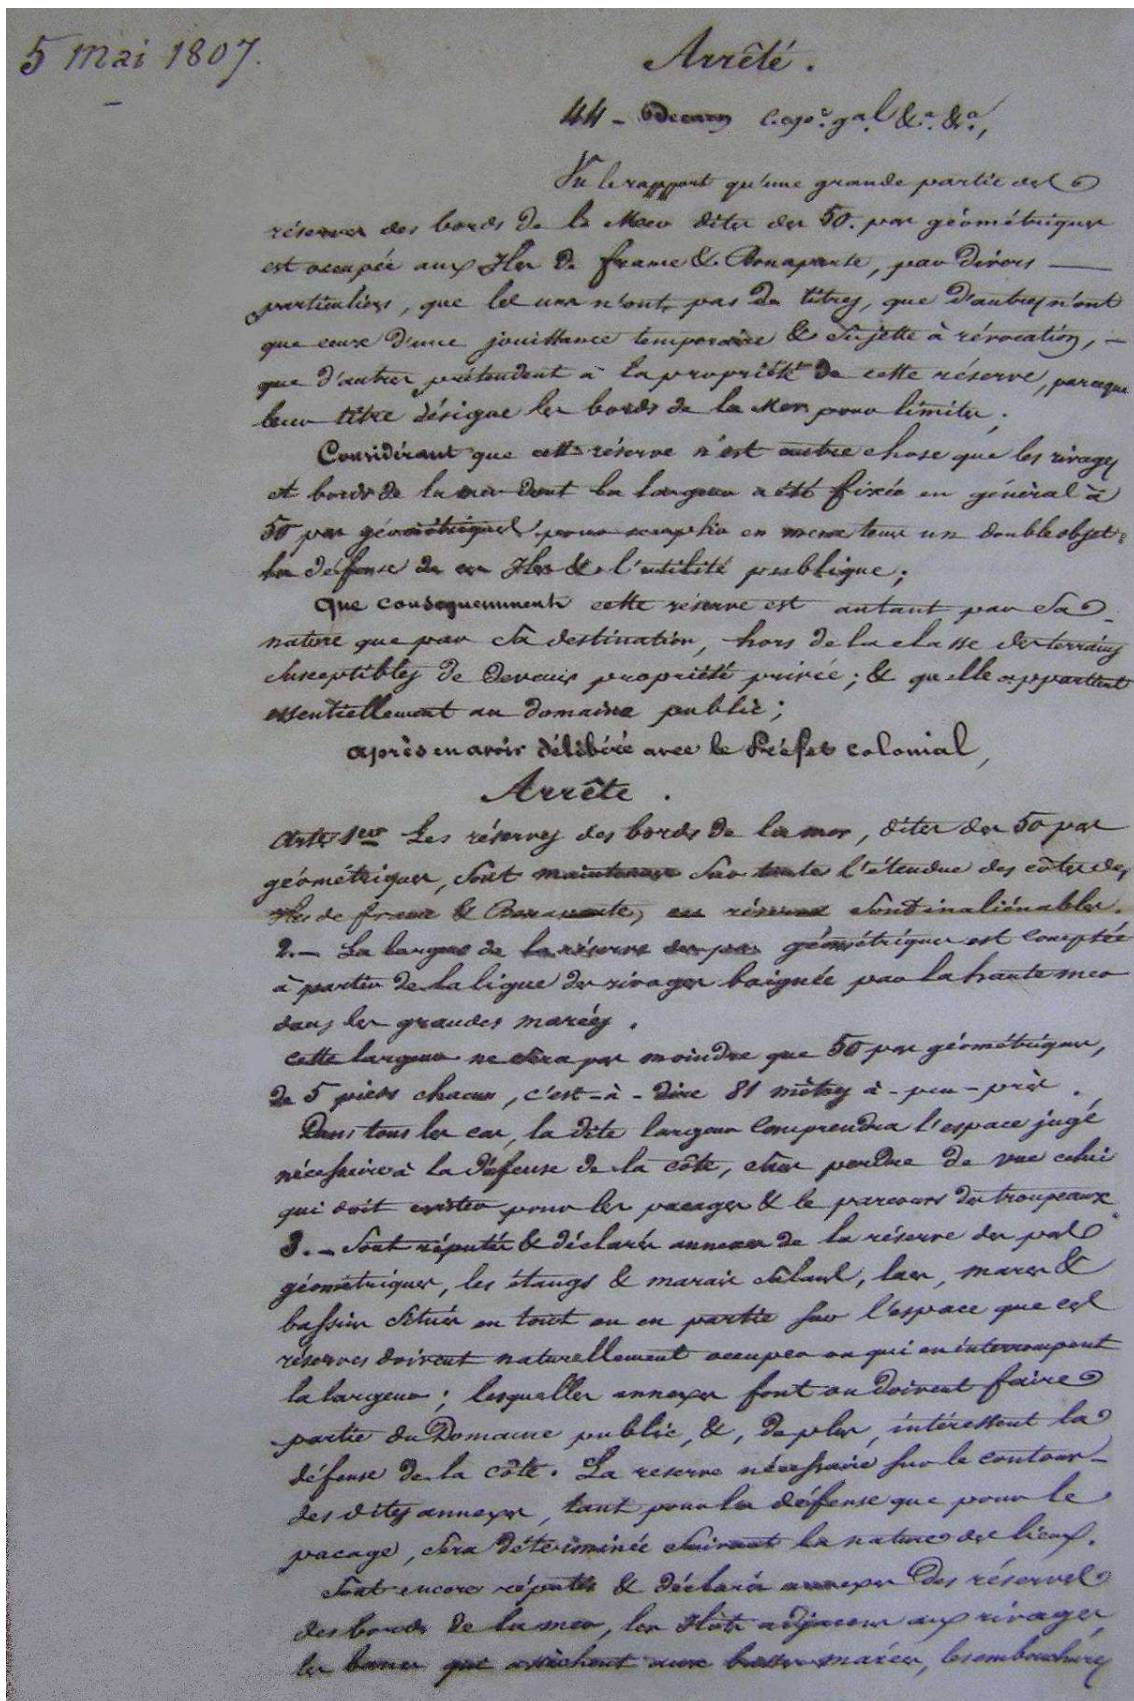 5 Mai 1807.
Arrêté.
44 - Decaen Cape. gal. &a. &a,
Vu le rapport qu'une grande partie des
réserves des bords de la Mer dites des 50. pas géométriques
est occupée aux Iles de france & Bonaparte, par divers —
particuliers, que les uns n'ont pas de titres, que d'autres n'ont
que ceux d'une jouissance temporaire & sujette à révocation, —
que d'autres prétendent à la propriété de cette réserve, parceque
leur titre désigne les bords de la Mer pour limites;
Considérant que cette réserve n'est autre chose que les rivages
et bords de la mer dont la largeur a été fixée en général à
50 pas géométriques pour remplir en meme tems un double objet:
la défense de ces Iles & l'utilité publique;
Que consequemment cette réserve est autant par sa
nature que par sa destination, hors de la classe des terrains
susceptibles de devenir propriété privée; & qu'elle appartient
essentiellement au domaine public;
après en avoir délibéré avec le Préfet colonial,
Arrête.
Arte. 1er Les réserves des bords de la mer, dites des 50 pas
géométriques, sont maintenues sur toute l'étendue des côtes des
Iles de france & Bonaparte, ces réserves sont inaliénables.
2. — La largeur de la réserve des pas géométriques est comptée
à partir de la ligne des rivages baignée par la haute mer
dans les grandes marées.
Cette largeur ne sera pas moindre que 50 pas géométriques,
de 5 pieds chacun, c'est-à-dire 81 mètres à-peu-près.
Dans tous les cas, la dite largeur comprendra l'espace jugé
nécessaire à la défense de la côte, sans perdre de vue celui
qui doit exister pour les pacages & le parcours des troupeaux.
3. — Sont réputés & déclarés annexes de la réserve des pas
géométriques, les étangs & marais salans, lacs, mares &
bassins situés en tout ou en partie sur l'espace que ces
réserves doivent naturellement occuper ou qui en interrompent
la largeur; lesquelles annexes font ou doivent faire
partie du Domaine public, &, de plus, intéressent la
défense de la côte. La reserve nécessaire sur le contour
des dites annexes, tant pour la défense que pour le
pacage, sera déterminée suivant la nature des lieux.
Sont encore réputés & déclarés annexes des réserves
des bords de la mer, les Ilots adjacens aux rivages,
les bancs qui assèchent aux basses marées, les embouchures